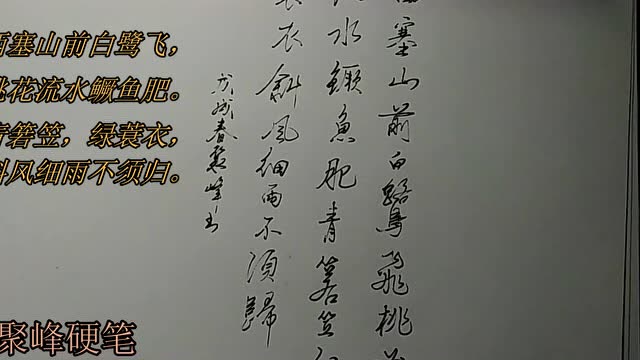 西塞山前白鹭飞，
桃花流水鳜鱼肥。
青箬笠，绿蓑衣，
斜风细雨不须归。
塞山前白鷺飛桃
水鱖魚肥青箬笠
衣斜風細雨不須歸
戊戌春聚峰书
聚峰硬笔